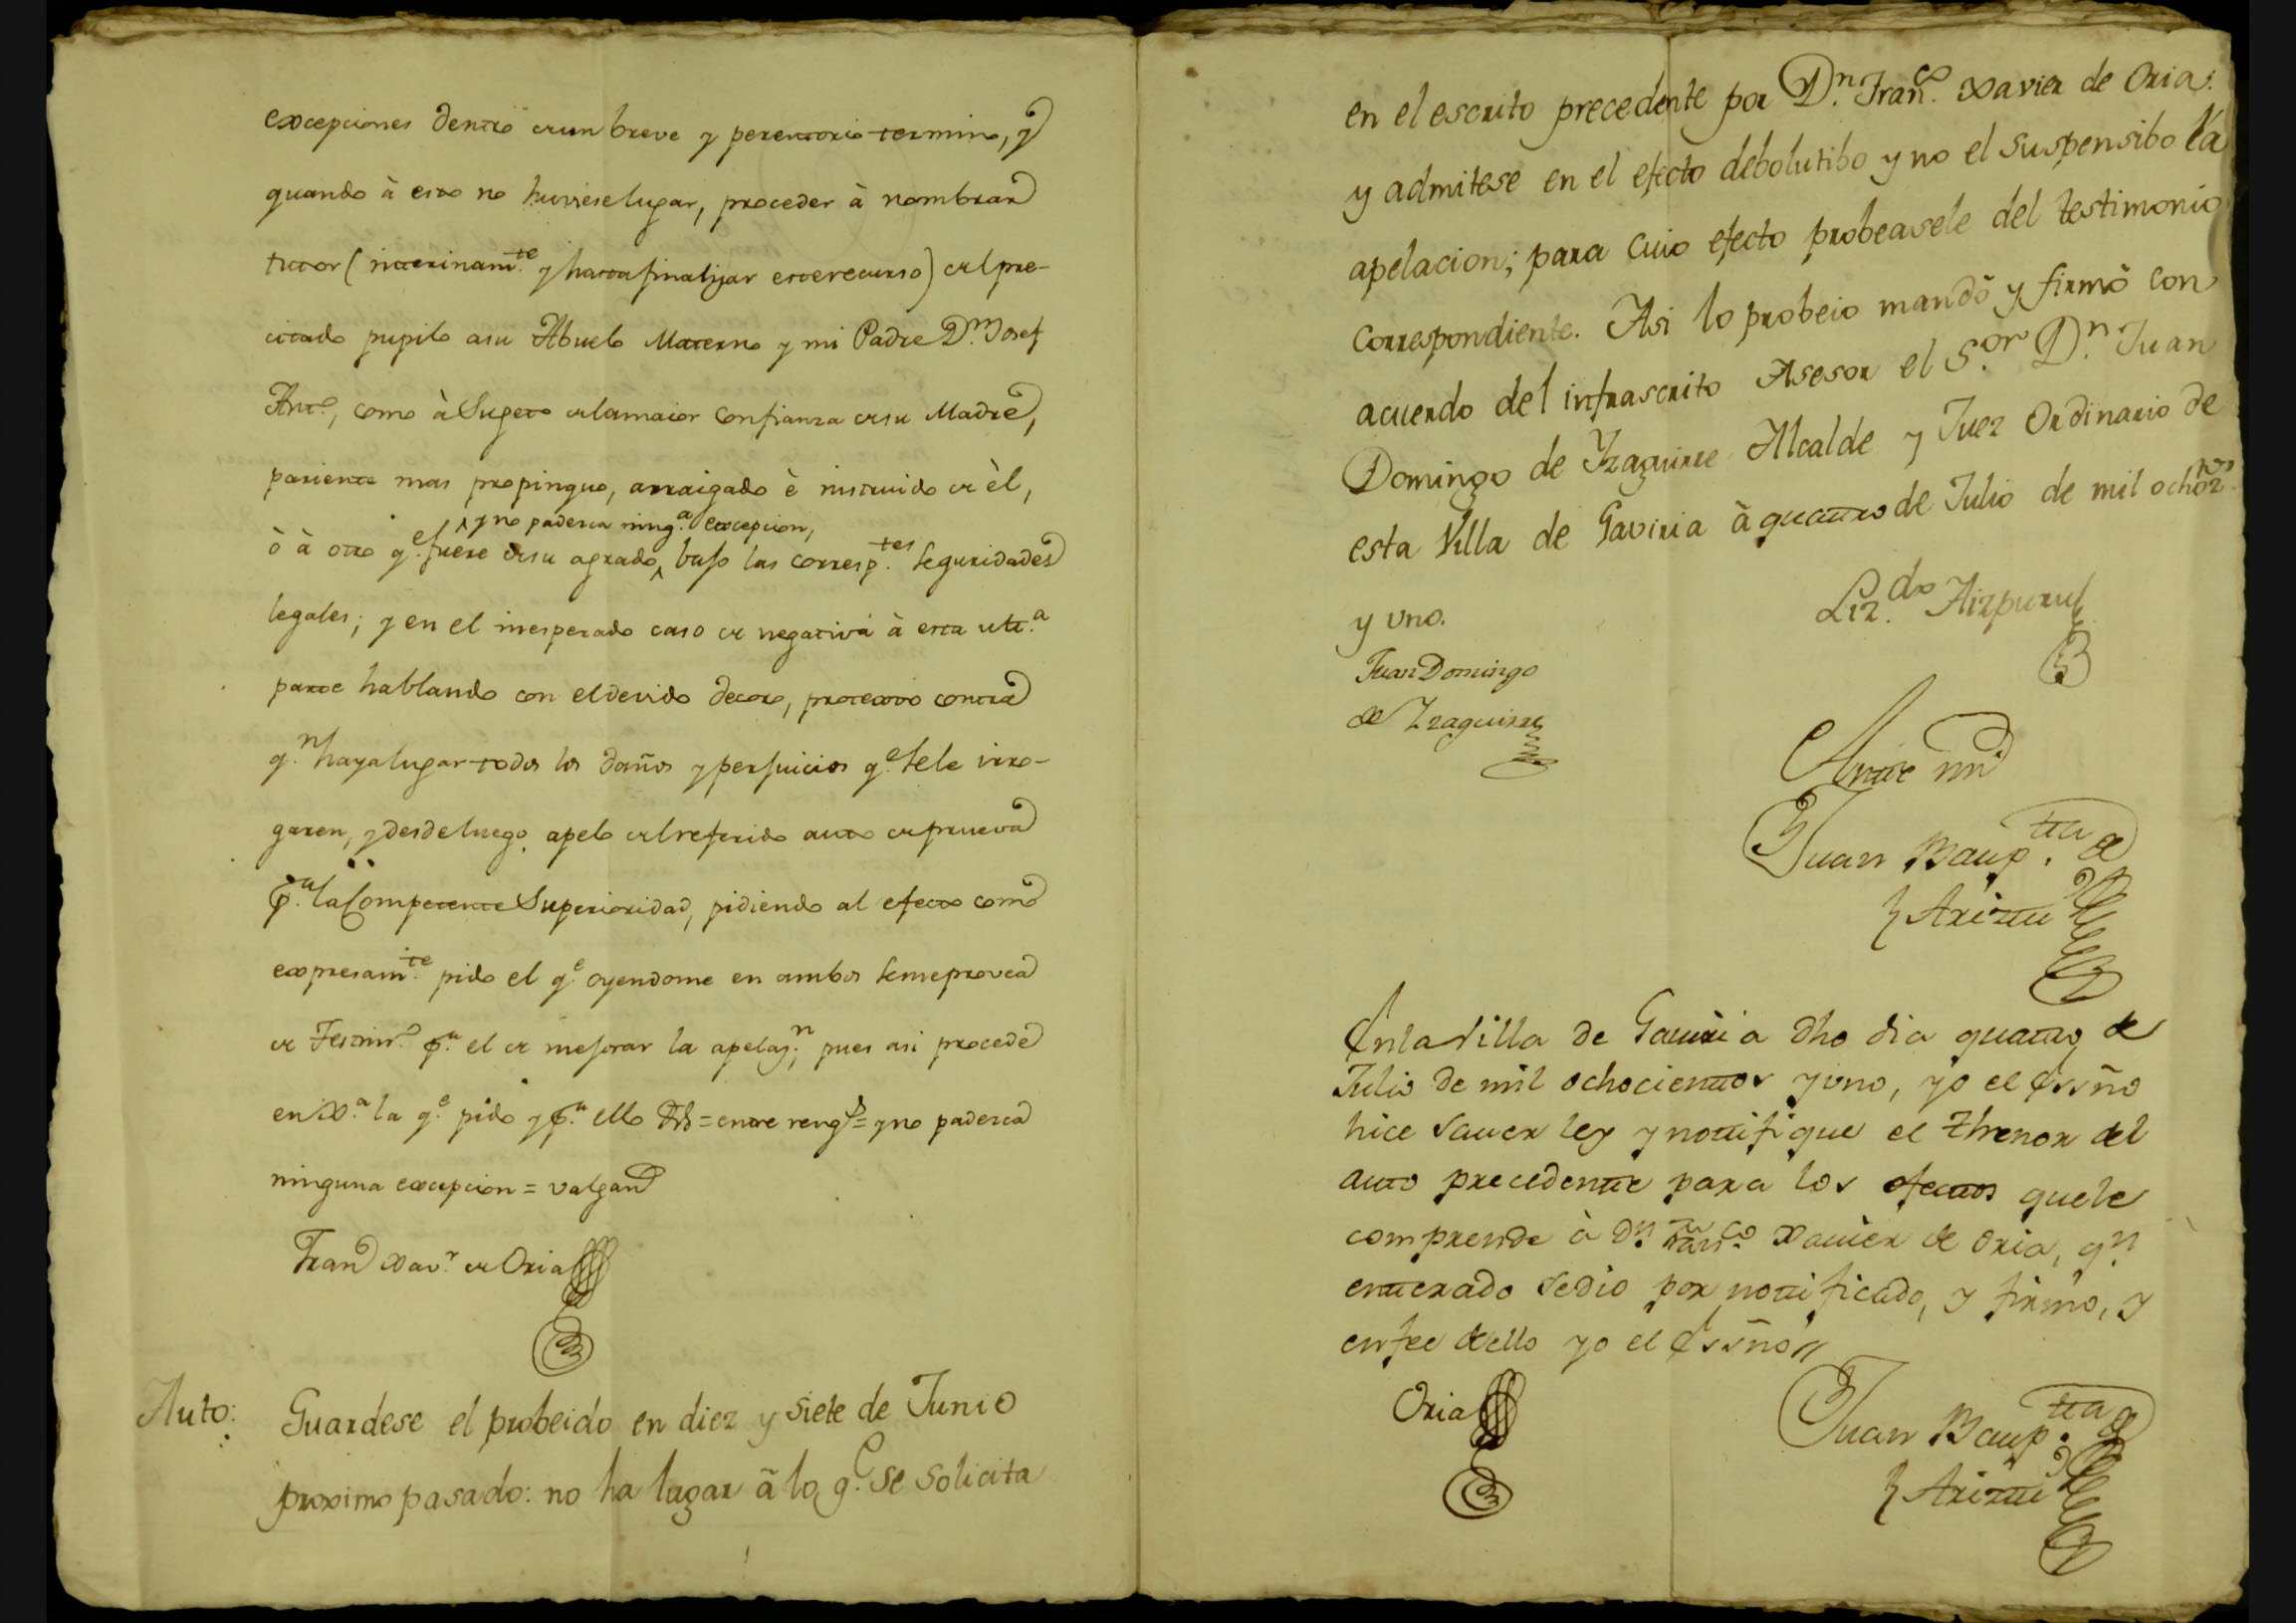 excepciones dentro de un breve y perentorio termino, y
quando à esto no huviese lugar, proceder à nombrar
tutor (interinam.te y hasta finalizar este recurso) del pre-
citado pupilo a su Abuelo Materno y mi Padre D.n Josef
Ant.o, como à Sugeto de la maior confianza de su Madre,
pariente mas propinquo, arraigado è instruido de èl,
y no padezca ning.a excepcion,
ò à otro q.e fuere de su agrado, bajo las corresp.tes seguridades
legales; y en el inesperado caso de negativa à esta ult.a
parte hablando con el devido decoro, protexto contra
q.n haya lugar todos los daños y perjuicios q.e se le irro-
garen, y desde luego apelo del referido auto de prueva
p.a la Competente Superioridad, pidiendo al efecto como
expresam.te pido el q.e oyendome en ambos se me provea
de Testim.o p.a el de mejorar la apelaz.n, pues asi procede
en Xa. la q.e pido y p.a ello = entre reng.s = y no padezca
ninguna excepcion = valgan
Fran Xav.r de Oria
Auto: Guardese el probeido en diez y siete de Junio
proximo pasado: no ha lugar à lo q.e se solicita
en el escrito precedente por D.n Fran.co Xavier de Oria:
y admitese en el efecto debolutibo y no el suspensibo la
apelacion; para cuio efecto probeasele del testimonio
correspondiente. Asi lo probeio mandò y firmò con
acuerdo del infrascrito Asesor el S.or D.n Juan
Domingo de Yzaguirre Alcalde y Juez Ordinario de
esta Villa de Gaviria à quatro de Julio de mil ochoz.tos
y uno.
Liz.do Aizpuru
Juan Domingo
de Yzaguirre
Ante mi
Juan Baup.tta de
Arizti
En la Villa de Gaviria dho dia quatro de
Julio de mil ochocientos y uno, yo el Essño
hice saver ley y notifique el thenor del
auto precedente para los efectos que le
comprende à D.n Fran.co Xavier de Oria, q.n
enterado se dio por notificado, y firmo, y
en fee de ello yo el Essño //
Oria
Juan Baup.tta de
Arizti